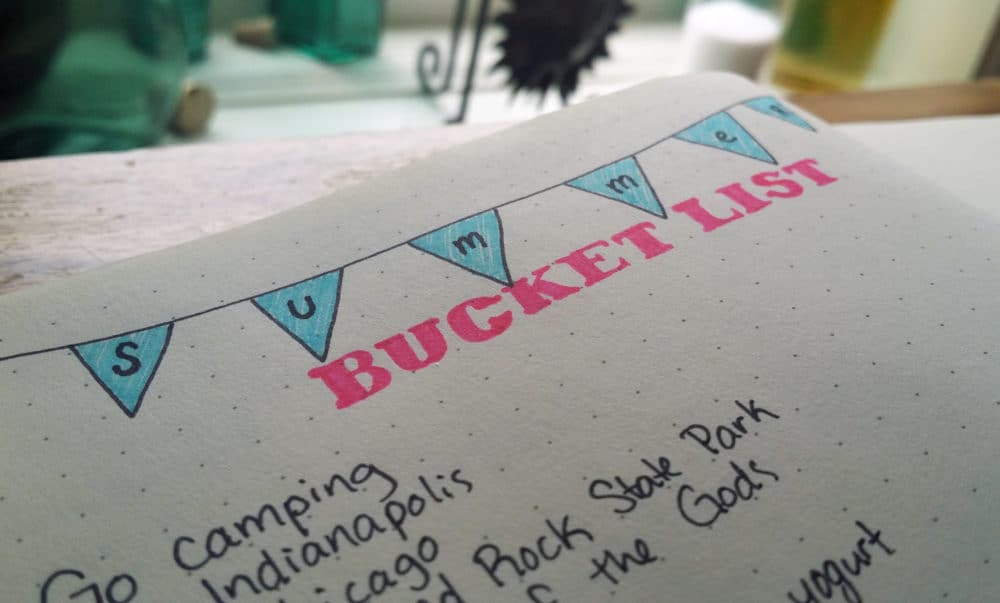 S U m m e r
BUCKET LIST
Go camping
Indianapolis
Rock State Park
the Gods
yogurt